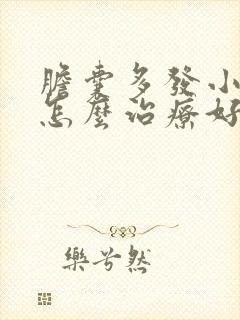 膽囊多發小
怎麼治療好
樂兮然